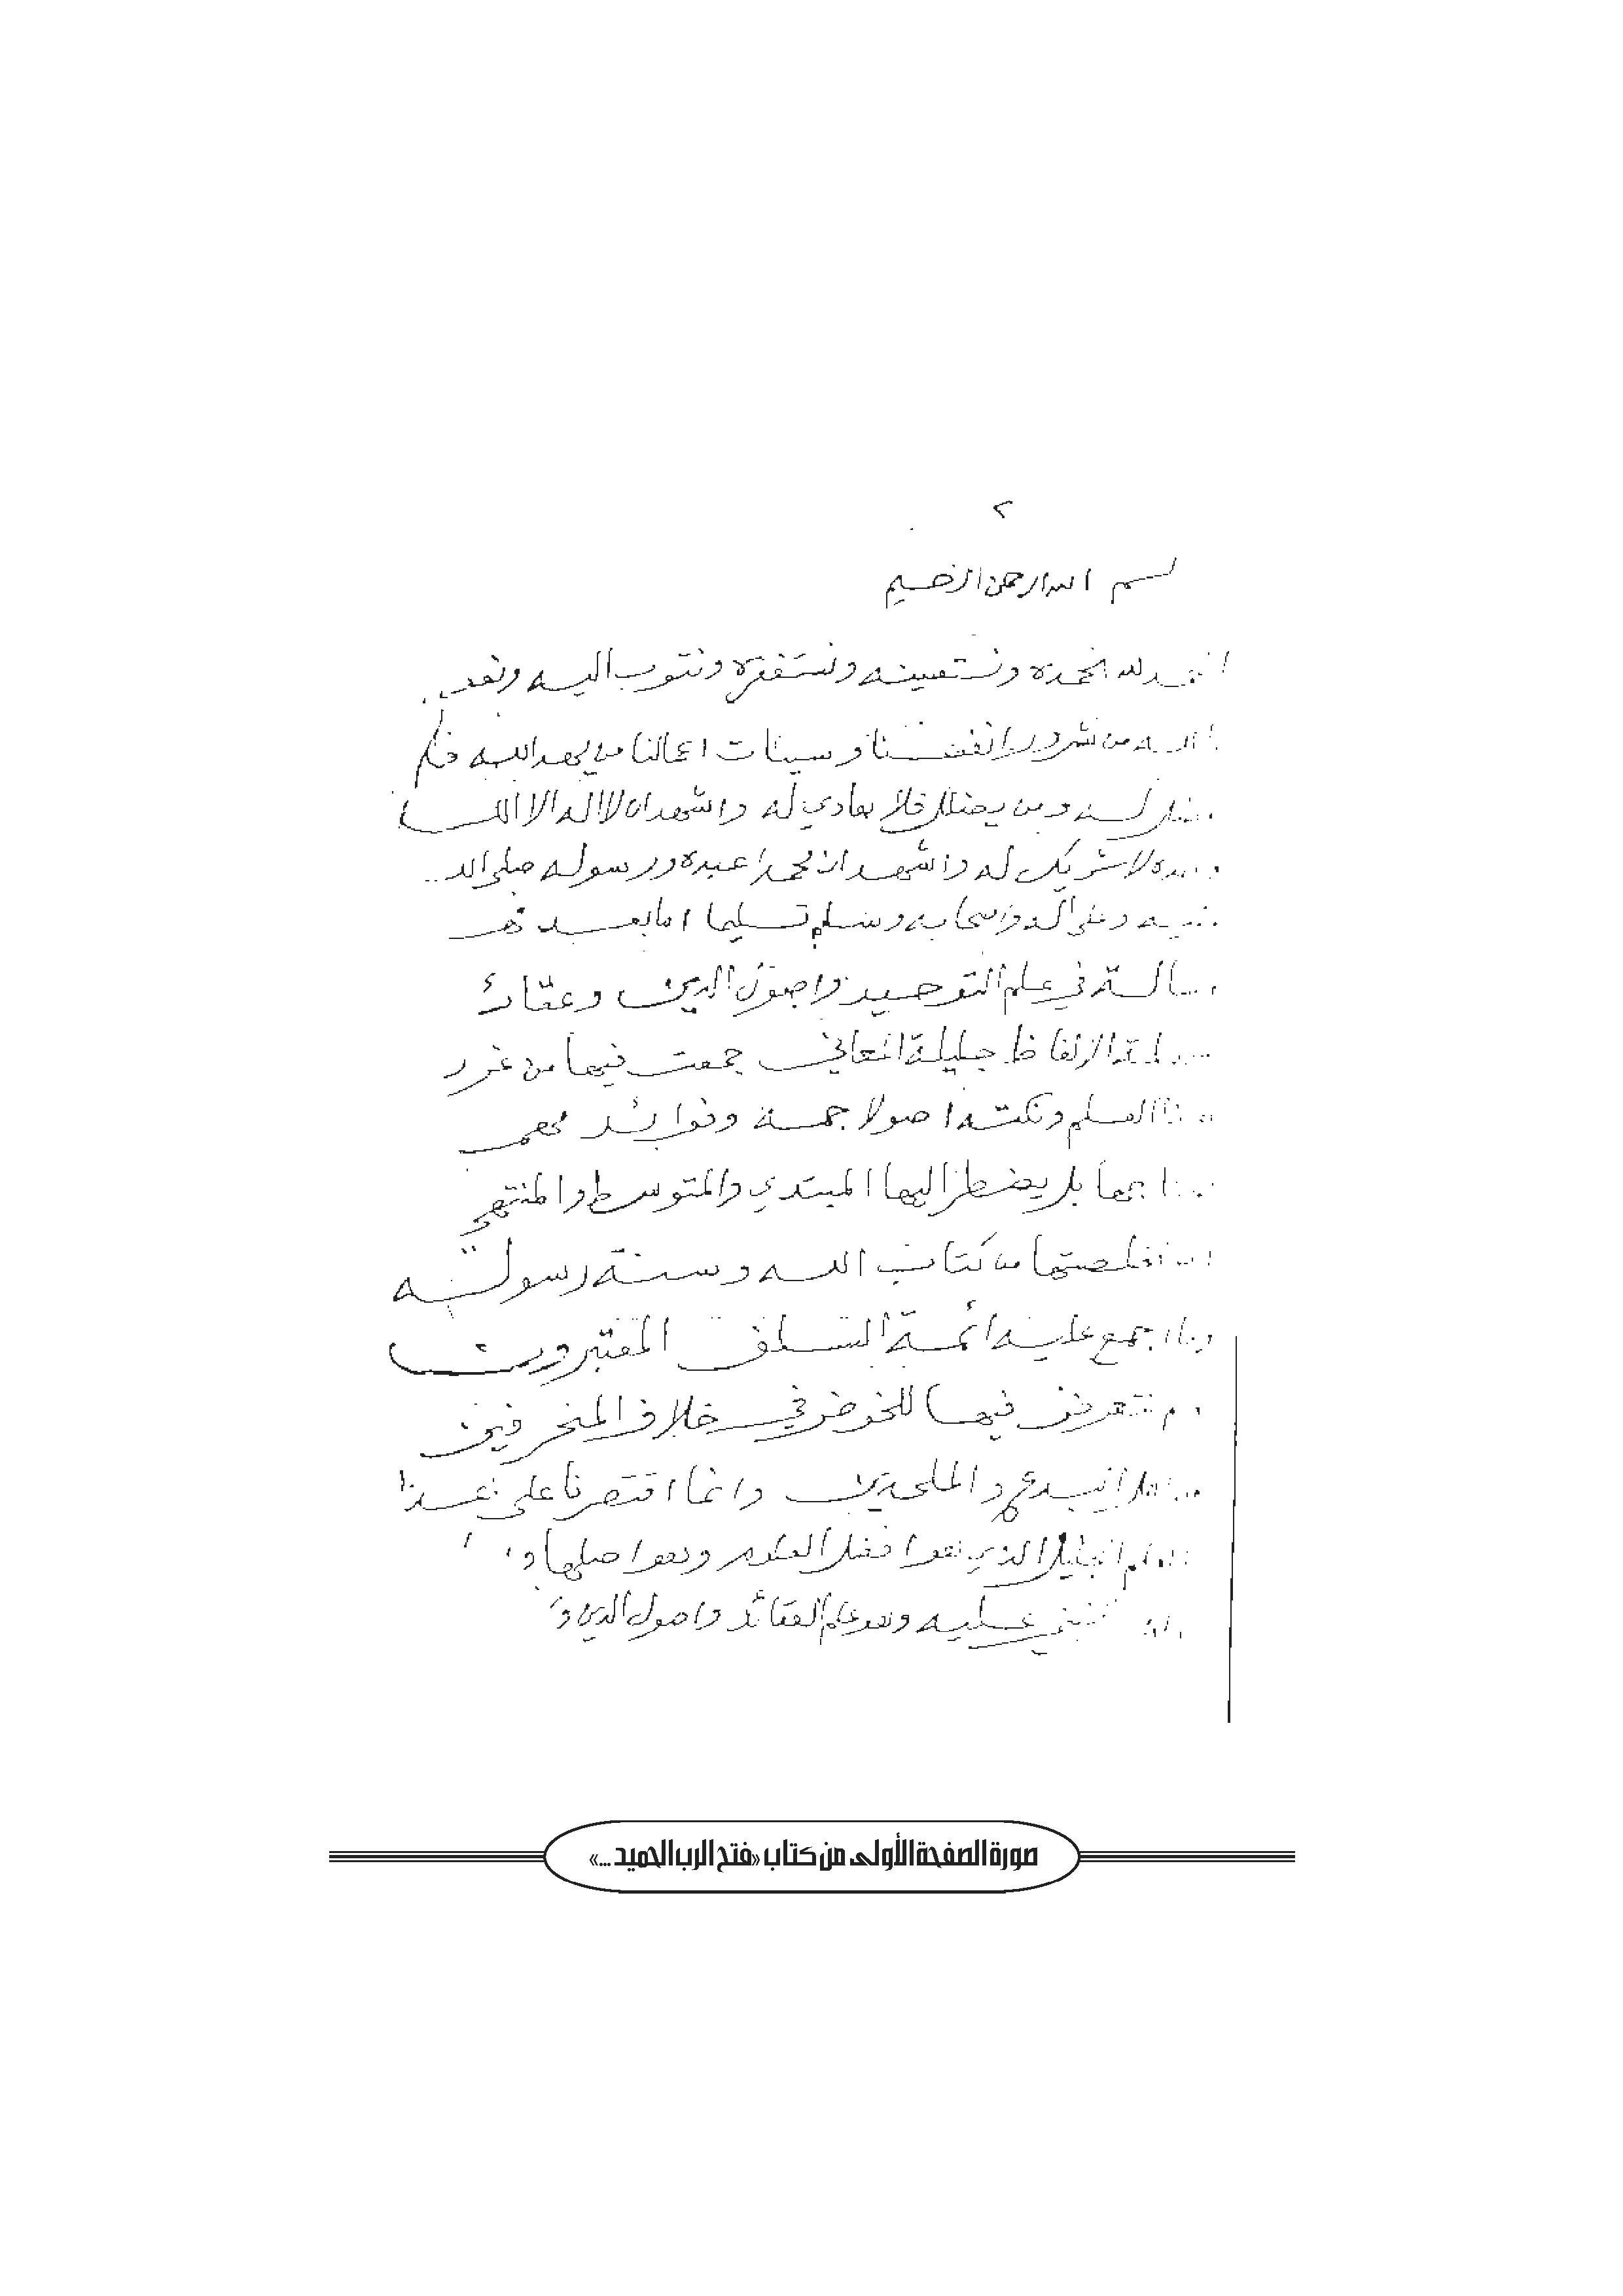 ٢
بسم الله الرحمن الرحيم
الحمد لله نحمده ونستعينه ونستغفره ونتوب اليه ونعوذ
بالله من شرور انفسنا وسيئات اعمالنا من يهد الله فلا
مضل له ومن يضلل فلا هادي له واشهد ان لا اله الا الله
وحده لا شريك له واشهد ان محمدا عبده ورسوله صلى الله
عليه وعلى اله واصحابه وسلم تسليما اما بعد
رسالة في علم التوحيد واصول الدين وعقائد
الالفاظ جليلة المعاني جمعت فيها من غرر
هذا العلم ونكته اصولا جمة وفوائد
بل يضطر اليها المبتدي والمتوسط والمنتهي
استخلصتها من كتاب الله وسنة رسوله
وما اجمع عليه ائمة السلف المعتبرون
ولم نتعرض فيها للخوض في خلاف المنحرفين
من اهل البدع والملحدين وانما اقتصرنا على هذا
العلم الجليل الذي هو افضل العلوم وهو اصلها
ينبني عليه وهو علم العقائد واصول الدين
صورة الصفحة الأولى من كتاب «فتح الرب الحميد ...»